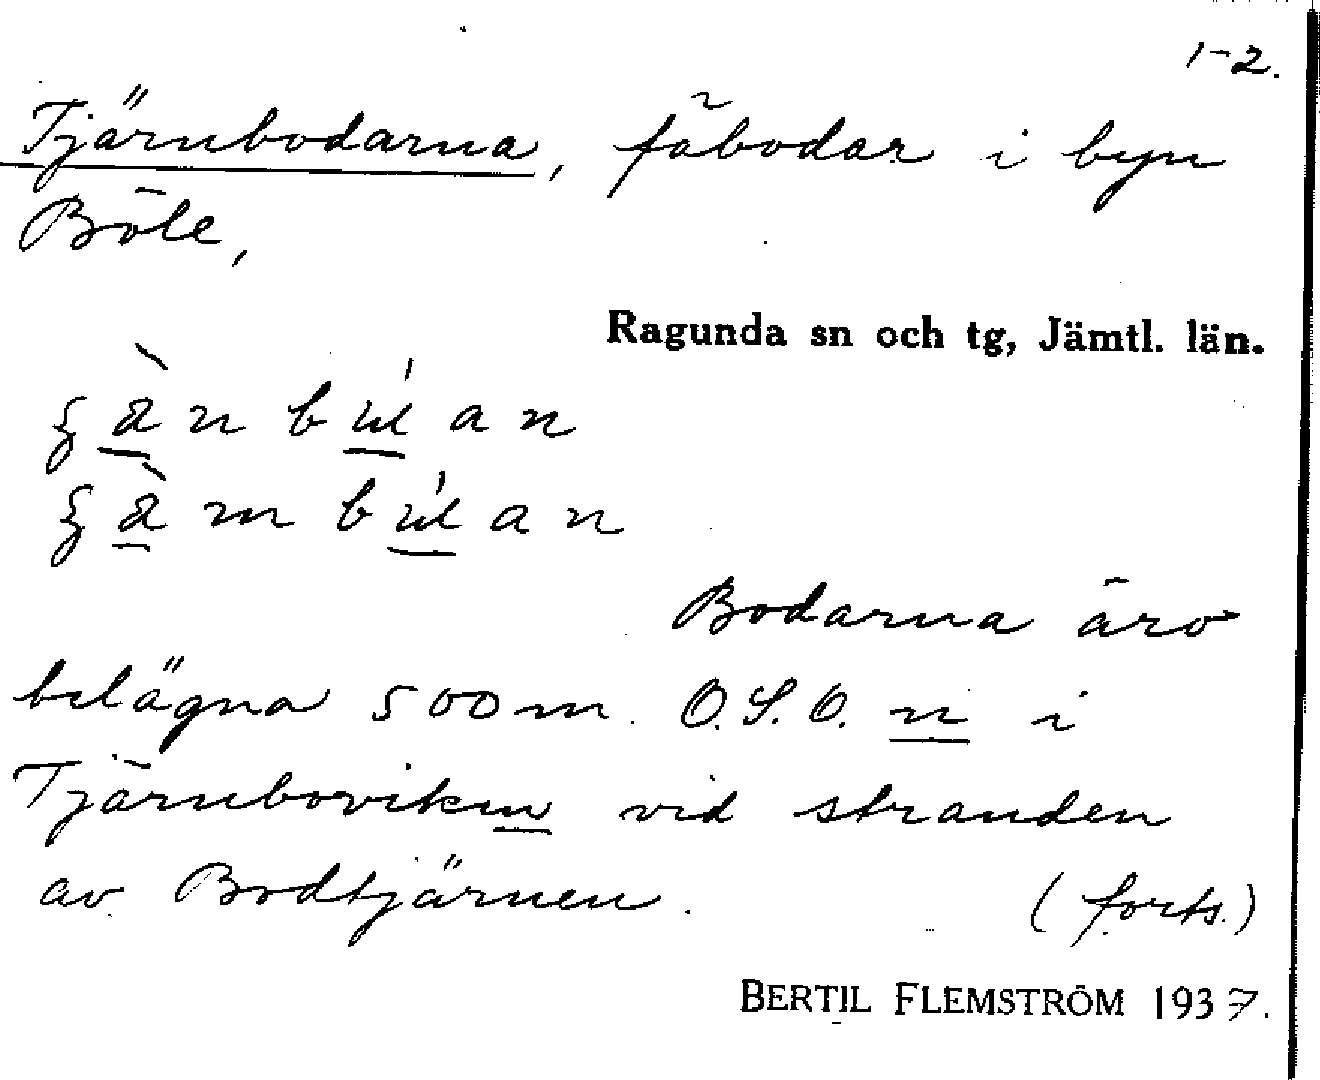 1-2.
Tjärnbodarna, fäbodar i byn
Böle,
Ragunda sn och tg, Jämtl. län.
Bodarna äro
belägna 500 m. O.S.O. n i
Tjärnboviken vid stranden
av Bodtjärnen.
(forts.)
BERTIL FLEMSTRÖM 1937.